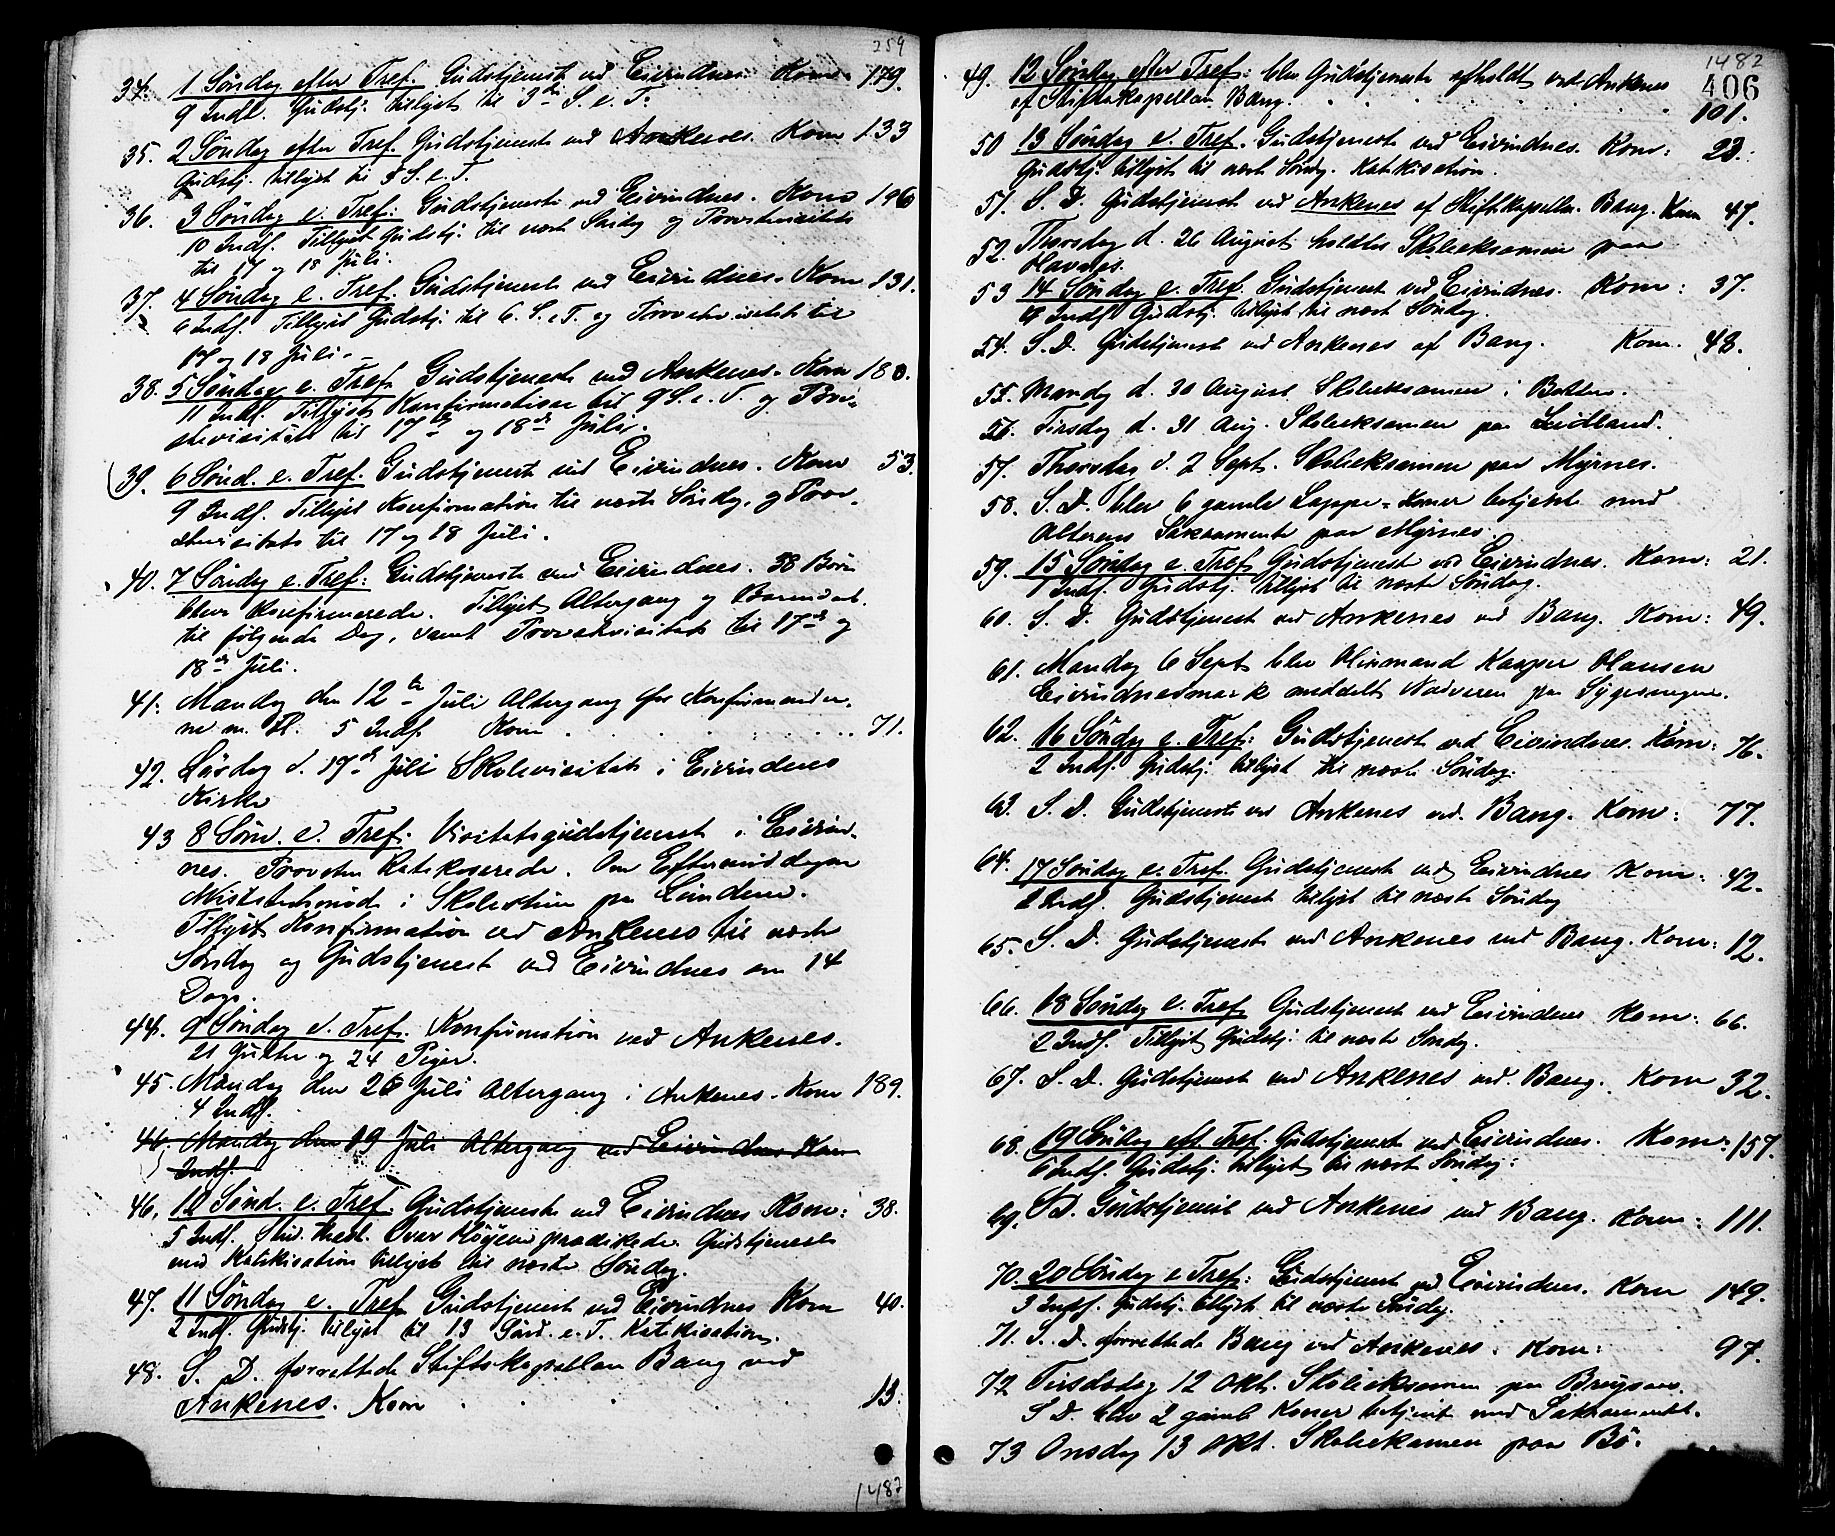 259
34. 1 Söndag efter Tref. Gudstjeneste ved Eivindnes. Kom. 179.
9 Indl. Gudstj. tillyst til 3die S. e. T.
35. 2 Söndag efter Tref. Gudstjeneste ved Ankenes. Kom 133
Gudstj. tillyst til 5 S. e. T.
36. 3 Söndag e. Tref. Gudstjeneste ved Eivindnes. Kom 196
10 Indf. Tillyst Gudstj. til næst Søndag og Provstevisitats
til 17 og 18 Juli.
37. 4 Söndag e. Tref. Gudstjeneste ved Eivindnes. Kom 131.
6 Indf. Tillyst Gudstj. til 6. S. e. T. og Provstevisitats til
17 og 18 Juli.
38. 5 Söndag e. Tref. Gudstjeneste ved Ankenes. Kom 180.
11 Indl. Tillyst Konfirmation til 9 S. e. T. og Prov-
stevisitats til 17de og 18de Juli.
39. 6 Sönd. e. Tref. Gudstjeneste ved Eivindnes. Kom 53.
9 Indf. Tillyst Konfirmation til næste Söndag, og Prov-
stevisitats til 17 og 18 Juli.
40. 7 Söndag e. Tref: Gudstjeneste ved Eivindnes. 38 Börn
bleve Konfirmerede. Tillyst Altergang og
til følgende Dag, samt Provstevisitats til 17de og
18de Juli.
41. Mandag den 12te Juli Altergang for Konfirmander-
ne m. fl. 5 Indf. Kom 71.
42. Lördag d. 17de Juli Skolevisitats i Eivindnes
Kirke
43 8 Sön. e. Tref: Visitatsgudstjeneste i Eivind-
nes. Provsten Katekiserede. Om Eftermiddagen
i Skolestuen paa
Tillyst Konfirmation ved Ankenes til næste
Söndag og Gudstjeneste ved Eivindnes om 14
Dage.
44. 9 Söndag e. Tref. Konfirmation ved Ankenes.
21 Gutter og 24 Piger.
45. Mandag den 26 Juli Altergang i Ankenes. Kom 189.
4 Indf.
46. Mandag den 19 Juli Altergang ved Eivindnes Kom
Indf.
46. 10 Sönd. e. Tref. Gudstjeneste ved Eivindnes Kom: 38.
3 Indf. Stud. theol. prædikede. Gudstjeneste
med Katekisation tillyst til næste Söndag.
47. 11 Söndag e. Tref Gudstjeneste ved Eivindnes Kom 40.
2 Indf. Gudstj. tillyst til 13 Sönd. e. T. Katekisation.
48. S. D. forrettede Stiftskapellan Bang ved
Ankenes. Kom 13.
1482
1482
406
49. 12 Söndag efter Tref: blev Gudstjeneste afholdt ved Ankenes
af Stiftskapellan Bang. 101.
50 13 Söndag e. Tref. Gudstjeneste ved Eivindnes. Kom: 23.
Gudstj. tillyst til næst Söndag. Katekisation.
51. S. D. Gudstjenest ved Ankenes af Stiftskapellan Bang. Kom 47.
52. Thorsdag d. 26 August holdtes Skoleeksamen paa
Havnes.
53 14 Söndag e. Tref. Gudstjenest ved Eivindnes. Kom: 37.
Indf Gudstj. tillyst til næst Söndag.
54. S. D. Gudstjenest ved Ankenes af Bang. Kom. 48.
55. Mandag d. 30 August Skoleeksamen i
56. Tirsdag d. 31 Aug. Skoleeksamen paa
57. Thorsdag d. 2 Sept. Skoleeksamen paa Myrnes.
58. S. D. blev 6 gamle Lappe-Koner betjent med
Alterens Sakramente paa Myrnes.
59. 15 Söndag e. Tref Gudstjenest ved Eivindnes. Kom: 21.
1 Indf. Gudstj. tillyst til næste Söndag.
60. S. D. Gudstjenest ved Ankenes ved Bang. Kom: 49.
61. Mandag 6 Sept blev Kasper Hansen
Eivindnesmark meddelt Nadveren paa Sygesengen.
62. 16 Söndag e. Tref: Gudstjenest ved Eivindnes. Kom: 76.
2 Indf. Gudstj. tillyst til næste Söndag.
63. S. D. Gudstjeneste ved Ankenes ved Bang. Kom: 77.
64. 17 Söndag e. Tref. Gudstjenest ved Eivindnes Kom: 42.
2 Indf. Gudstjenest tillyst til næste Söndag
65. S. D. Gudstjeneste ved Ankenes ved Bang. Kom: 12.
66. 18 Söndag e. Tref Gudstjenest ved Eivindnes Kom: 66.
2 Indf. Tillyst Gudstj. til næste Söndag.
67. S. D. Gudstjenest ved Ankenes ved. Bang. Kom 32.
68. 19 Söndag eft Tref. Gudstjenest ved Eivindnes. Kom: 157.
6 Indf. Gudstj. tillyst til næst Söndag:
69. S. D. Gudstjenest ved Ankenes ved Bang. Kom: 111.
70. 20 Söndag e Tref: Gudstjenest ved Eivindnes. Kom 149.
3 Indf. Gudstj. tillyst til næste Söndag.
71. S. D. forrettede Bang ved Ankenes. Kom: 97.
72 Tirsdag 12 Okt. Skoleeksamen paa
S D. blev 2 gamle Koner betjent med Sakramentet.
73 Onsdag 13 Okt. Skoleeksamen paa Bö.